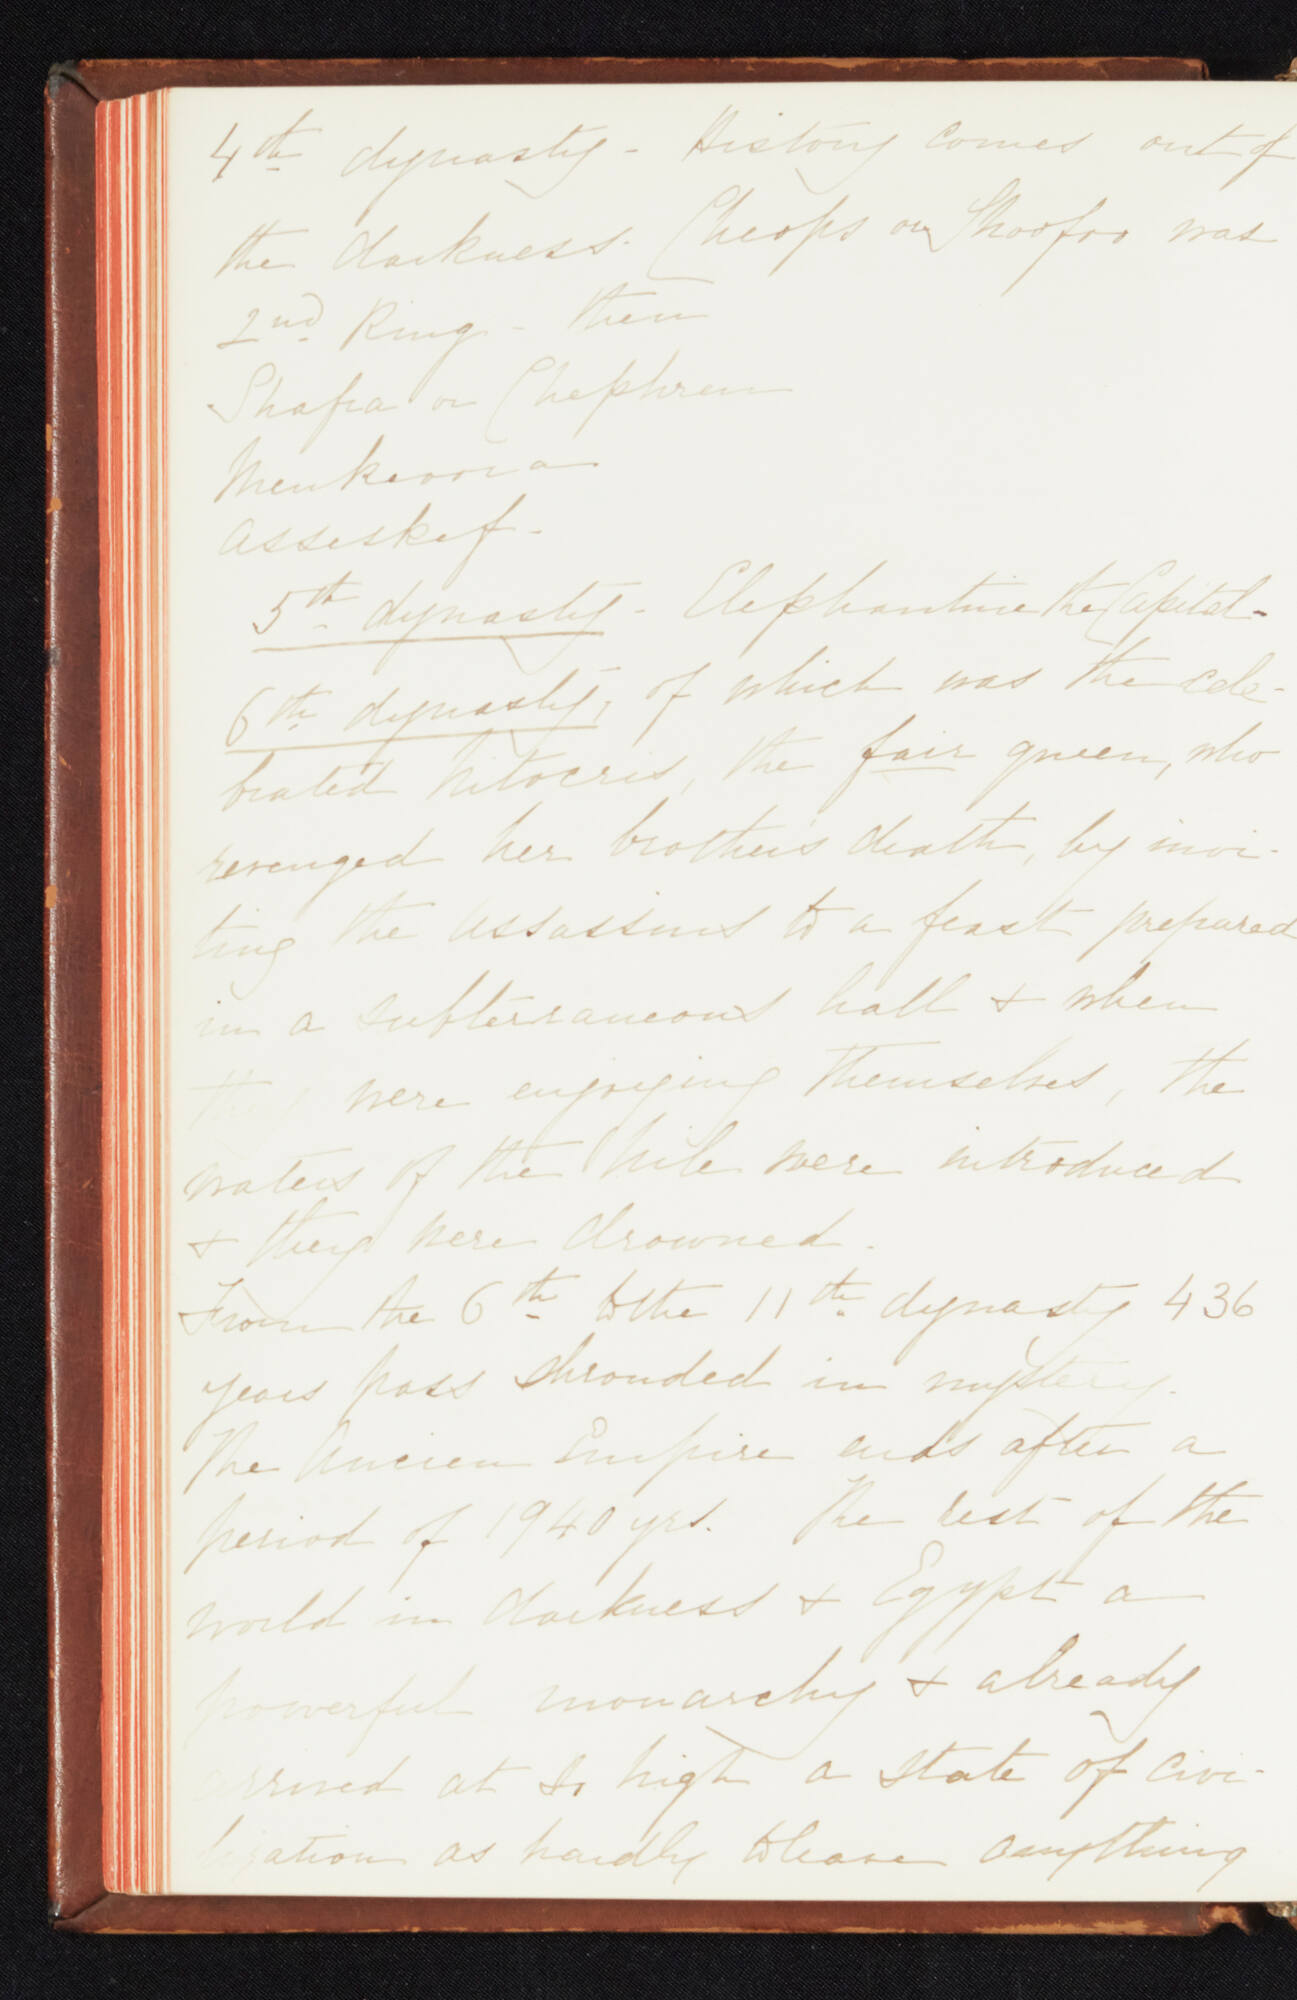 4th dynasty - History comes out of
the darkness. Cheops or Shoofoo was
2nd King - then
Shafra or Chephren
Menkaoora
Asseskef -
5th dynasty - Elephantine the Capital -
6th dynasty, of which was the cele-
brated Nitocris, the fair queen, who
revenged her brother's death, by invi-
ting the assassins to a feast prepared
in a subterraneous hall & when
they were enjoying themselves, the
waters of the Nile were introduced
& they were drowned.
From the 6th to the 11th dynasty 436
years pass shrouded in mystery.
The Ancien Empire ends after a
period of 1940 yrs. The rest of the
world in darkness & Egypt a
powerful monarchy & already
arrived at so high a state of civi-
lization as hardly to leave anything